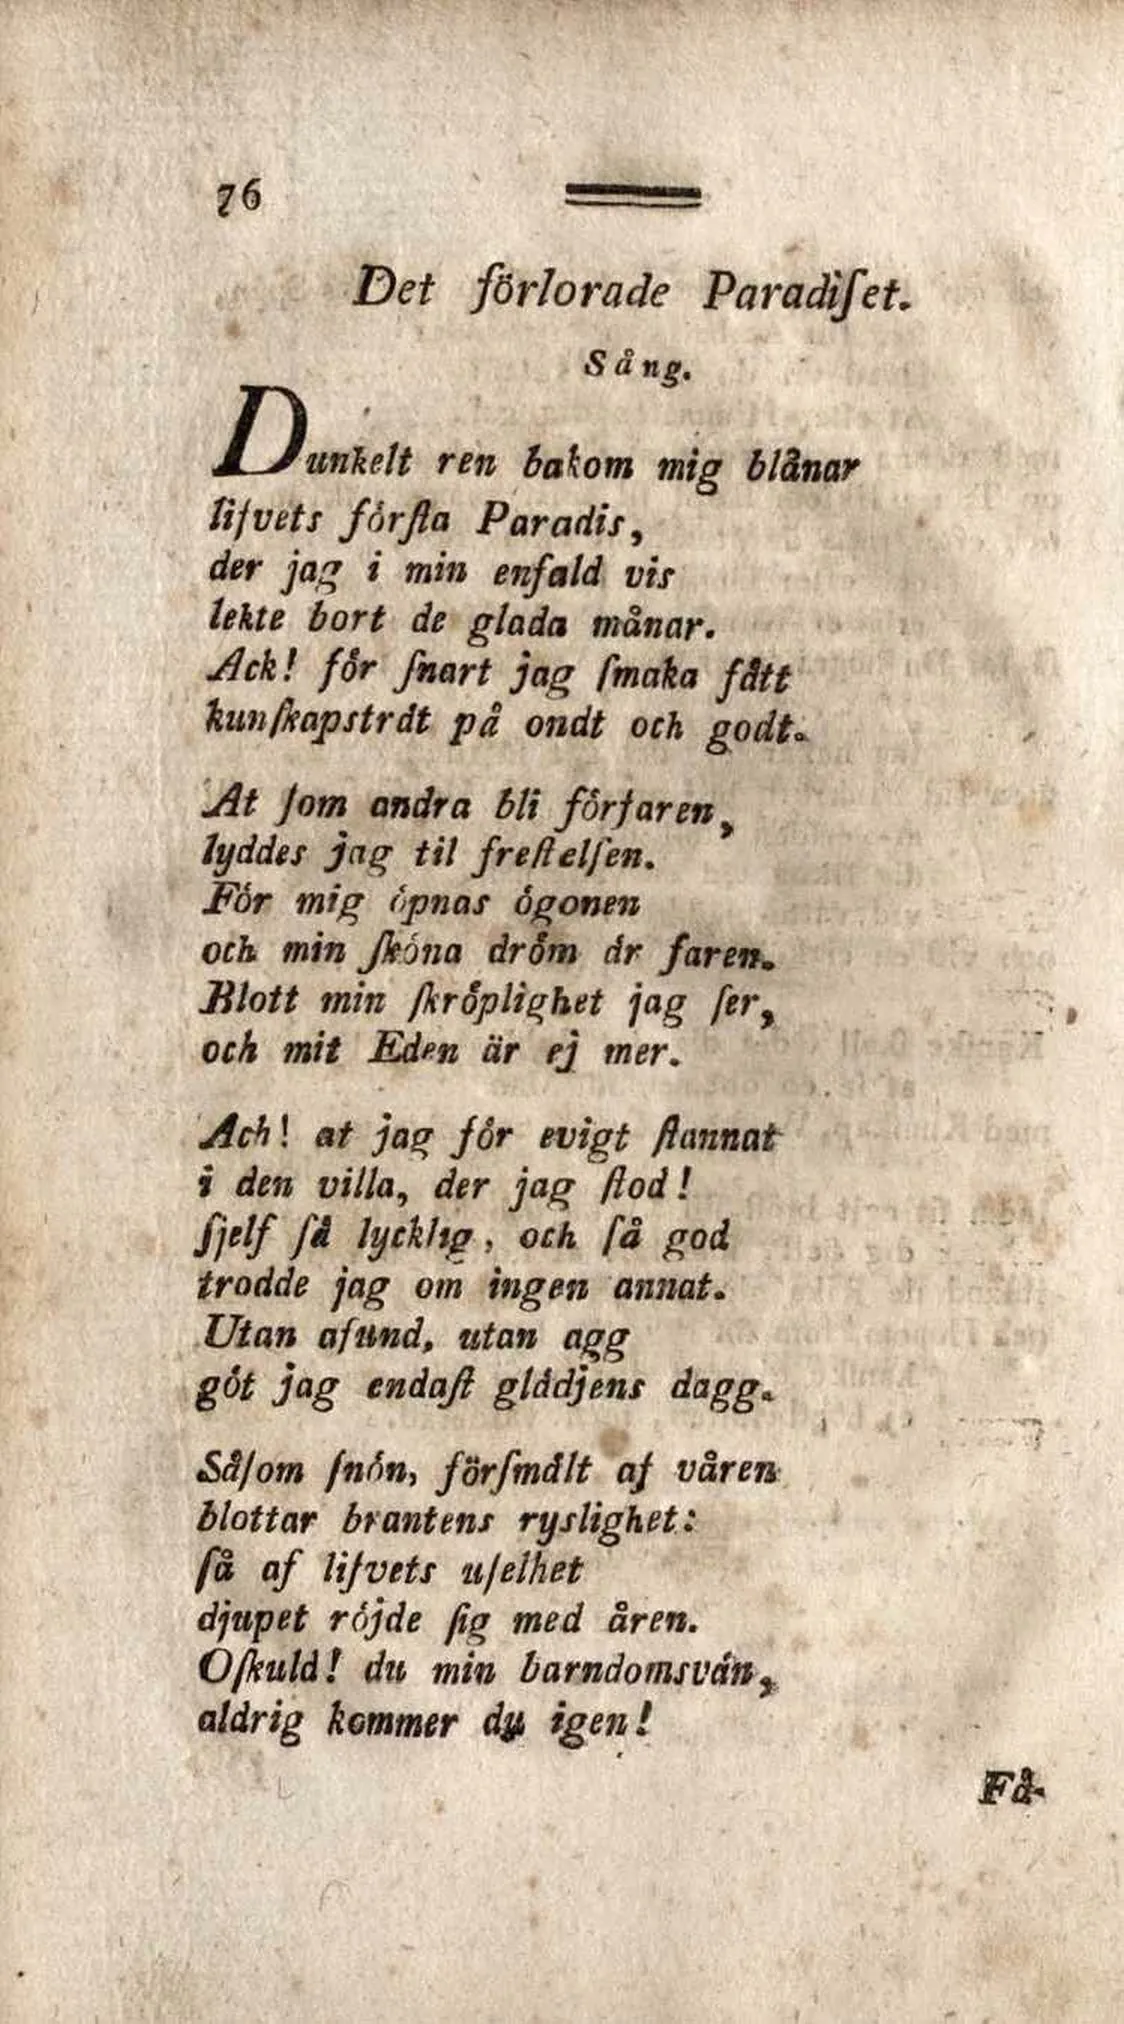 76
Det förlorade Paradiſet.
Sång.
Dunkelt ren bakom mig blånar
lifvets förſta Paradis,
der jag i min enfald vis
lekte bort de glada månar.
Ack! för ſnart jag ſmaka fått
kunſkapsträt på ondt och godt.
At ſom andra bli förfaren,
lyddes jag til freſtelſen.
För mig öpnas ögonen
och min ſköna dröm är faren.
Blott min ſkröplighet jag ſer,
och mit Eden är ej mer.
Ach! at jag för evigt ſtannat
i den villa, der jag ſtod!
ſjelf ſå lycklig, och ſå god
trodde jag om ingen annat.
Utan afund, utan agg
göt jag endaſt glädjens dagg.
Såſom ſnön, förſmält af våren
blottar brantens ryslighet:
ſå af lifvets uſelhet
djupet röjde ſig med åren.
Oſkuld! du min barndomsvän,
aldrig kommer du igen!
Få-